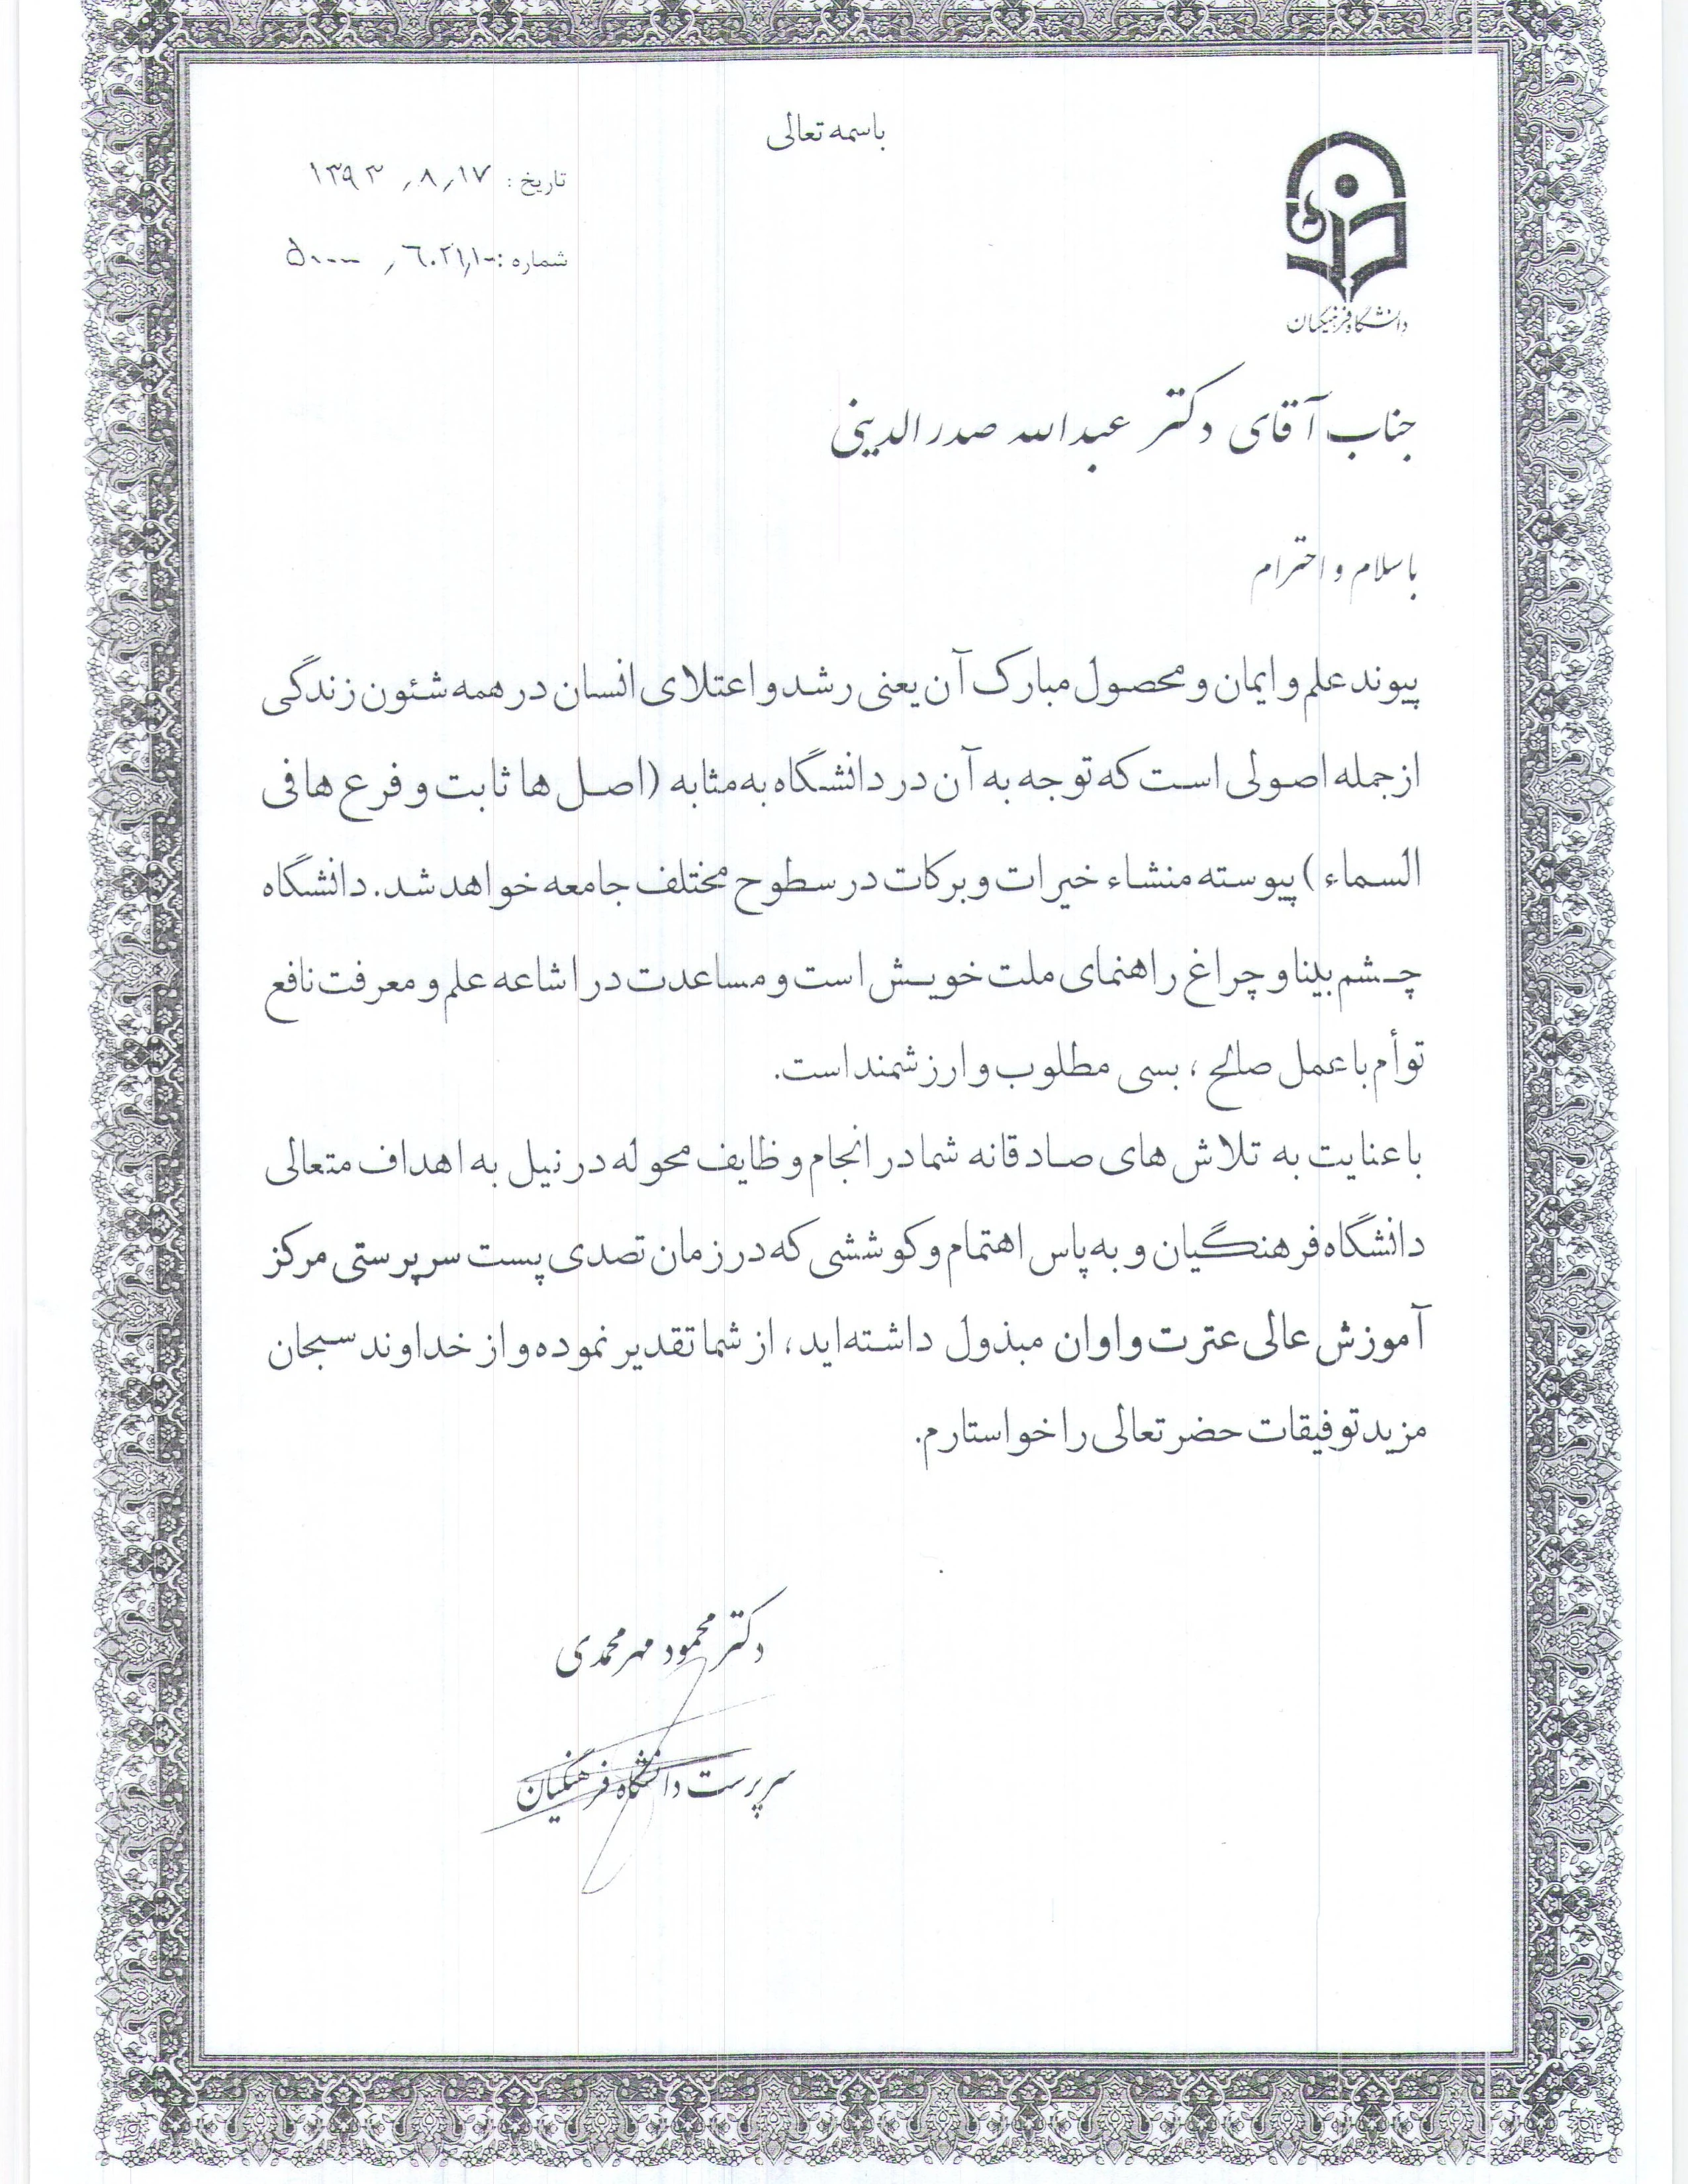 باسمه تعالی
تاریخ : ۱۳۹۳٫۸٫۱۷
شماره :
دانشگاه فرهنگیان
جناب آقای دکتر عبدالله صدرالدینی
باسلام و احترام
پیوند علم و ایمان و محصول مبارک آن یعنی رشد و اعتلای انسان در همه شئون زندگی
از جمله اصولی است که توجه به آن در دانشگاه به مثابه (اصل ها ثابت و فرع ها فی
السماء) پیوسته منشاء خیرات و برکات در سطوح مختلف جامعه خواهد شد. دانشگاه
چشم بینا و چراغ راهنمای ملت خویش است و مساعدت در اشاعه علم و معرفت نافع
توأم با عمل صالح ، بسی مطلوب و ارزشمند است.
با عنایت به تلاش های صادقانه شما در انجام وظایف محوله در نیل به اهداف متعالی
دانشگاه فرهنگیان و به پاس اهتمام و کوششی که در زمان تصدی پست سرپرستی مرکز
آموزش عالی عترت واوان مبذول داشته اید، از شما تقدیر نموده و از خداوند سبحان
مزید توفیقات حضرتعالی را خواستارم.
دکتر محمود مهرمحمدی
سرپرست دانشگاه فرهنگیان